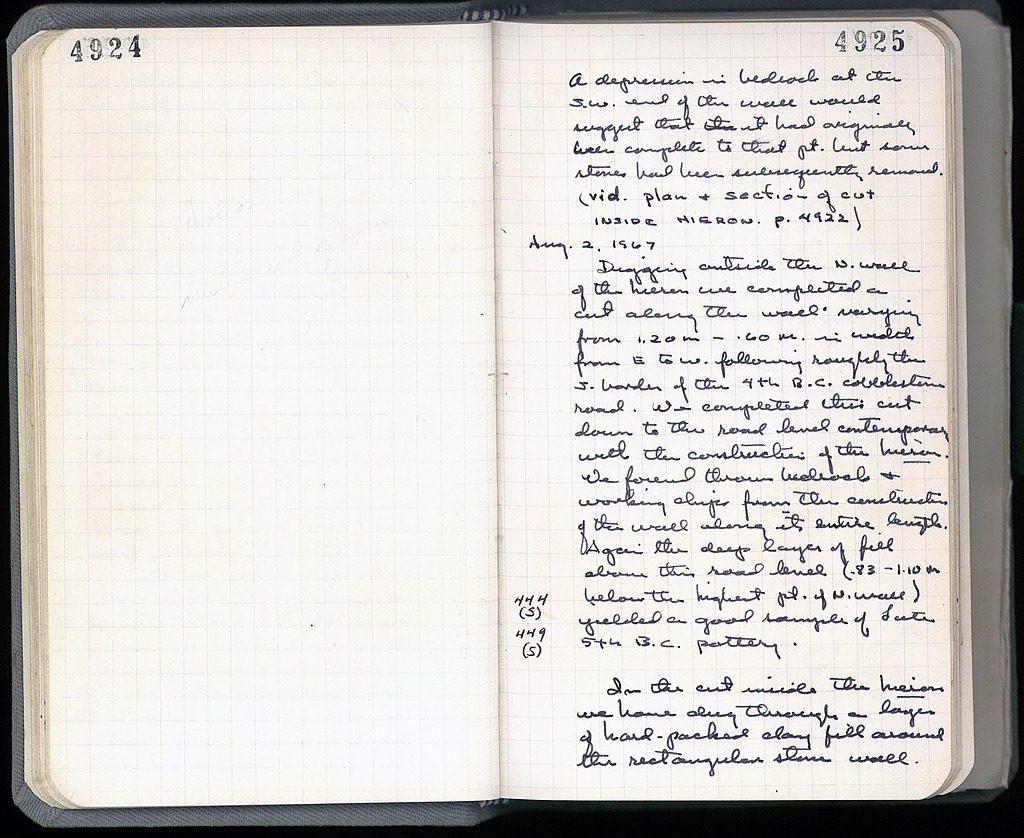 4924
4925
A depression in bedrock at the
S.W. end of the wall would
suggest that it had originally
been complete to that pt. but some
stones had been subsequently removed.
(vid. plan + section of cut
INSIDE HIERON. p. 4922)
Aug. 2, 1967
Digging outside the N. wall
of the hieron we completed a
cut along the wall varying
from 1.20 m - .60 m. in width
from E to W. following roughly the
S. border of the 4th B.C. cobblestone
road. We completed this cut
down to the road level contemporary
with the construction of the hieron.
We found thrown bedrock +
working chips from the construction
of the wall along its entire length.
Again the deep layer of fill
above this road level (.83 - 1.10 m
444
(S)
below the highest pt. of N. wall)
yielded a good sample of Late
449
(S)
5th B.C. pottery.
In the cut inside the hieron
we have dug through a layer
of hard-packed clay fill around
the rectangular stone wall.